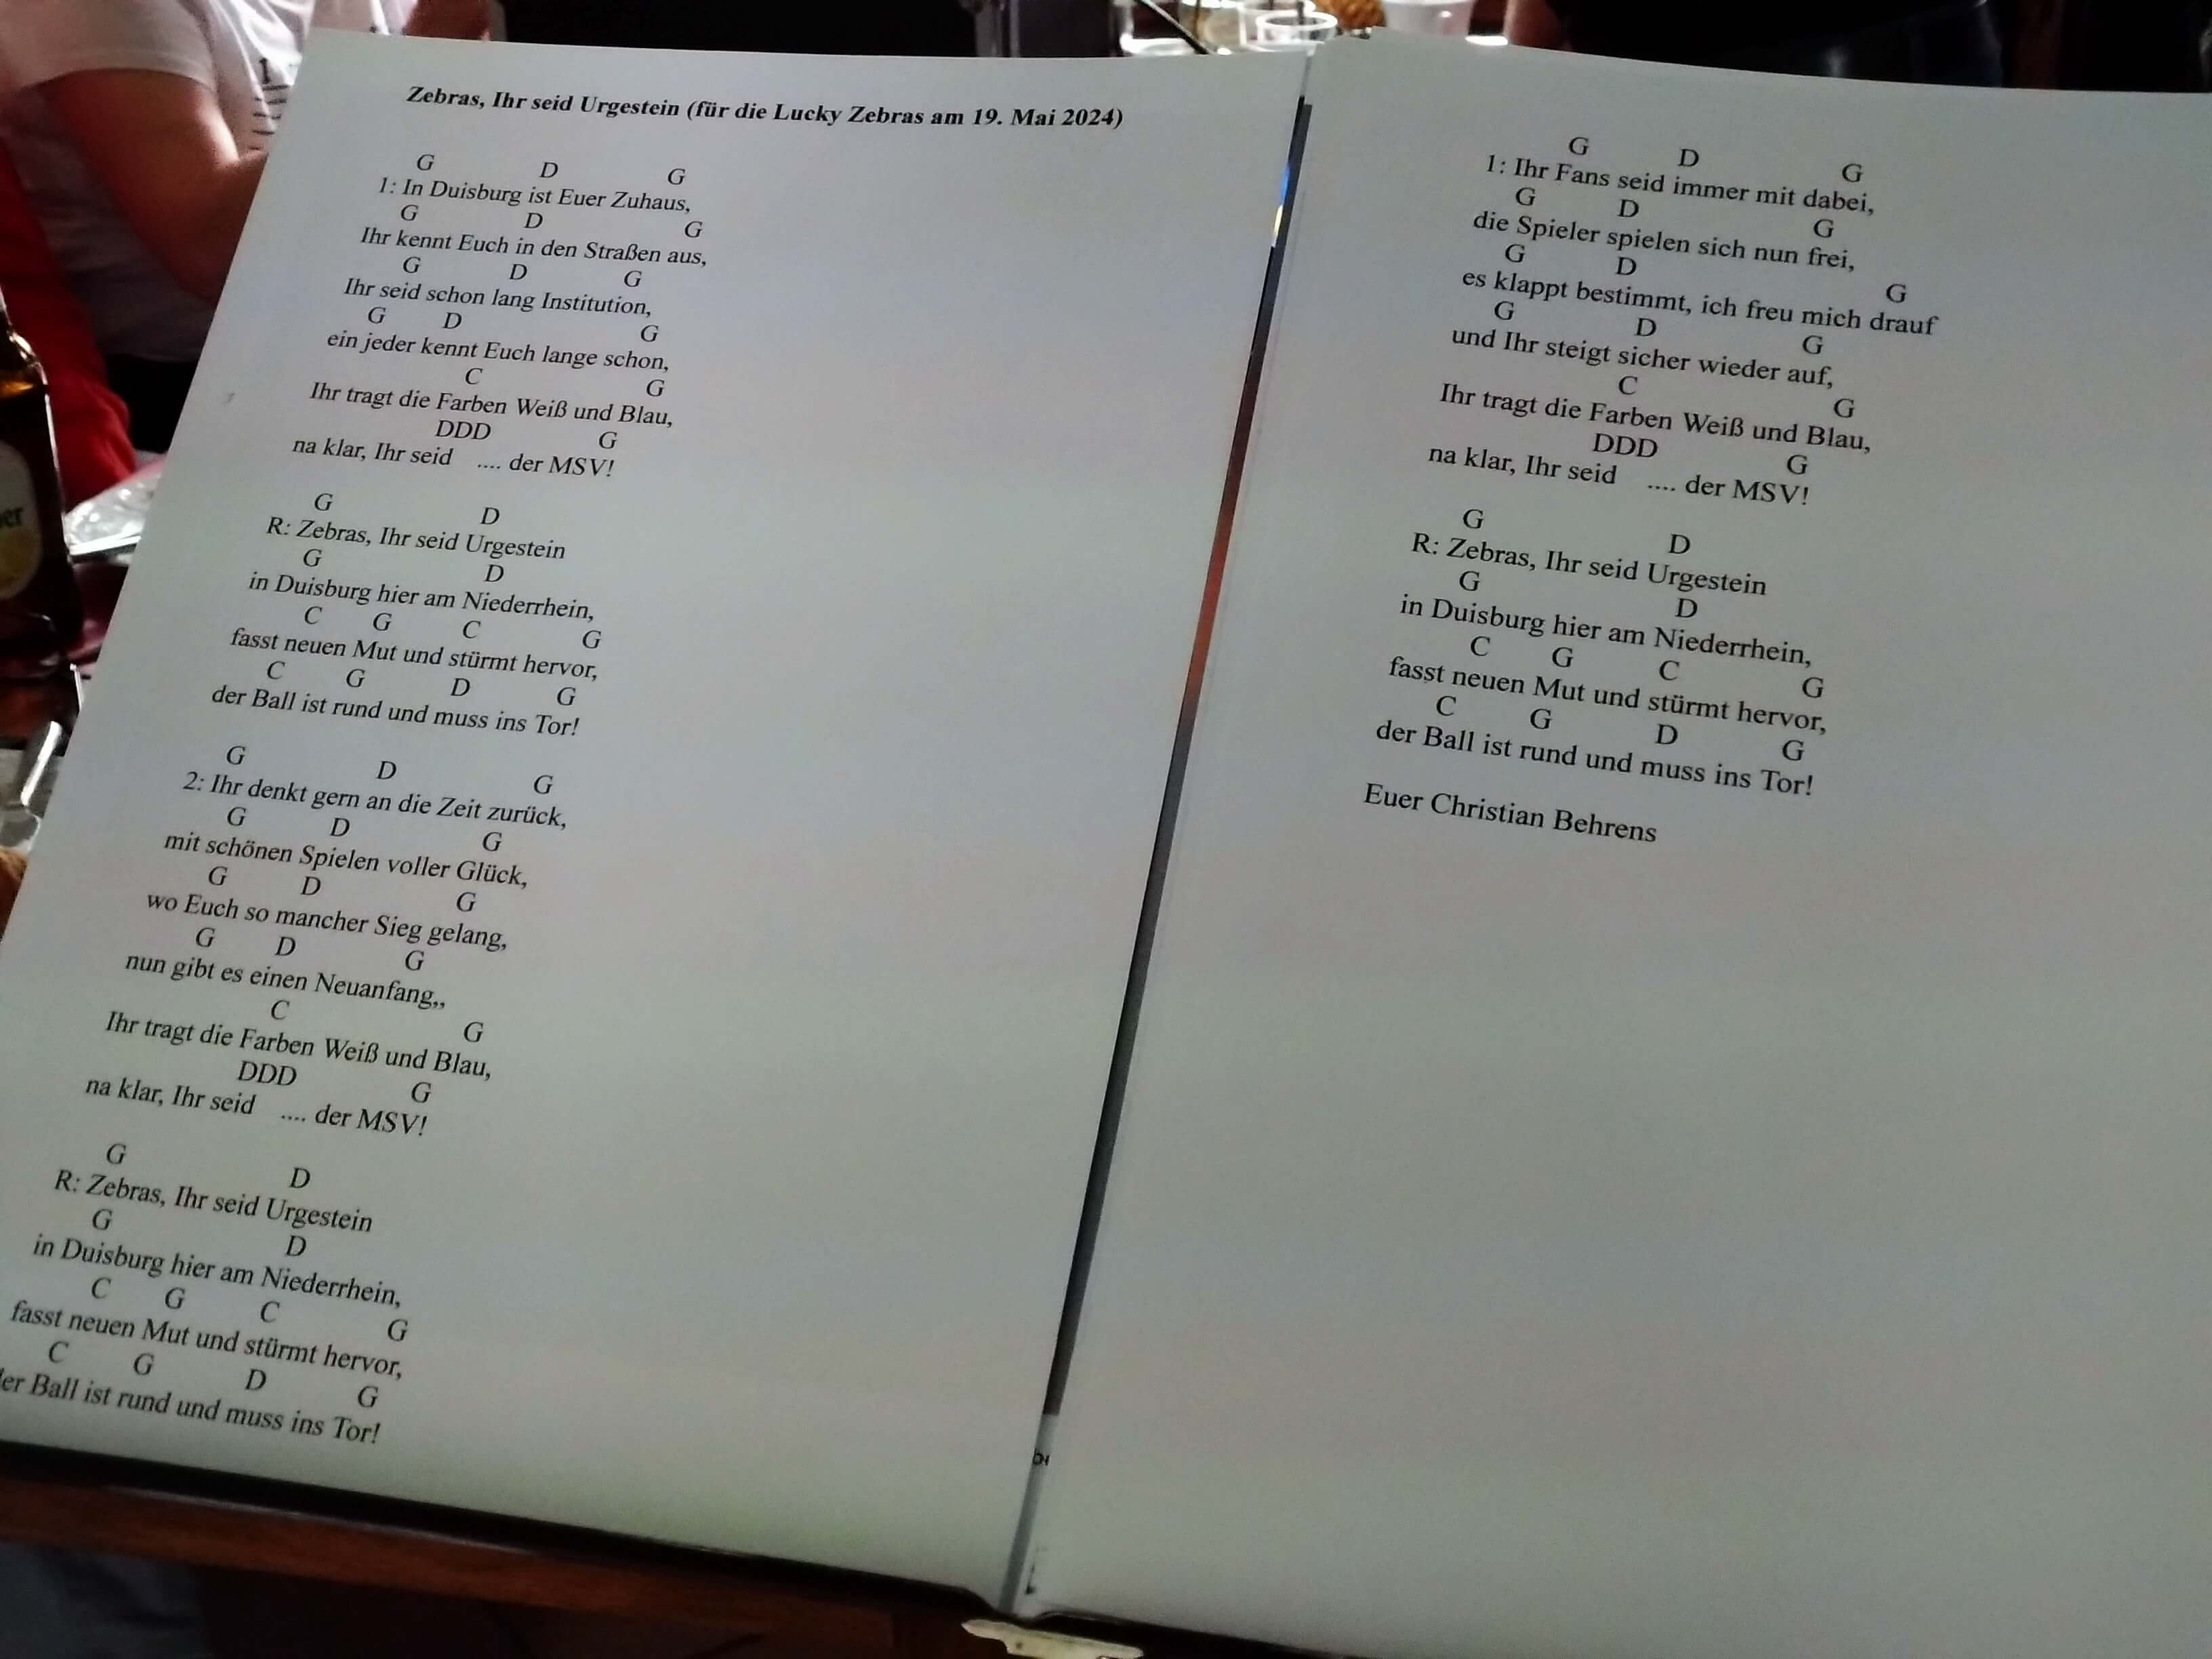 Zebras, Ihr seid Urgestein (für die Lucky Zebras am 19. Mai 2024)
G D G
1: In Duisburg ist Euer Zuhaus,
G D G
Ihr kennt Euch in den Straßen aus,
G D G
Ihr seid schon lang Institution,
G D G
ein jeder kennt Euch lange schon,
C G
Ihr tragt die Farben Weiß und Blau,
DDD G
na klar, Ihr seid .... der MSV!
G D
R: Zebras, Ihr seid Urgestein
G D
in Duisburg hier am Niederrhein,
C G C G
fasst neuen Mut und stürmt hervor,
C G D G
der Ball ist rund und muss ins Tor!
G D G
2: Ihr denkt gern an die Zeit zurück,
G D G
mit schönen Spielen voller Glück,
G D G
wo Euch so mancher Sieg gelang,
G D G
nun gibt es einen Neuanfang,,
C G
Ihr tragt die Farben Weiß und Blau,
DDD G
na klar, Ihr seid .... der MSV!
G D
R: Zebras, Ihr seid Urgestein
G D
in Duisburg hier am Niederrhein,
C G C G
fasst neuen Mut und stürmt hervor,
C G D G
er Ball ist rund und muss ins Tor!
G D G
1: Ihr Fans seid immer mit dabei,
G D G
die Spieler spielen sich nun frei,
G D G
es klappt bestimmt, ich freu mich drauf
G D G
und Ihr steigt sicher wieder auf,
C G
Ihr tragt die Farben Weiß und Blau,
DDD G
na klar, Ihr seid .... der MSV!
G D
R: Zebras, Ihr seid Urgestein
G D
in Duisburg hier am Niederrhein,
C G C G
fasst neuen Mut und stürmt hervor,
C G D G
der Ball ist rund und muss ins Tor!
Euer Christian Behrens